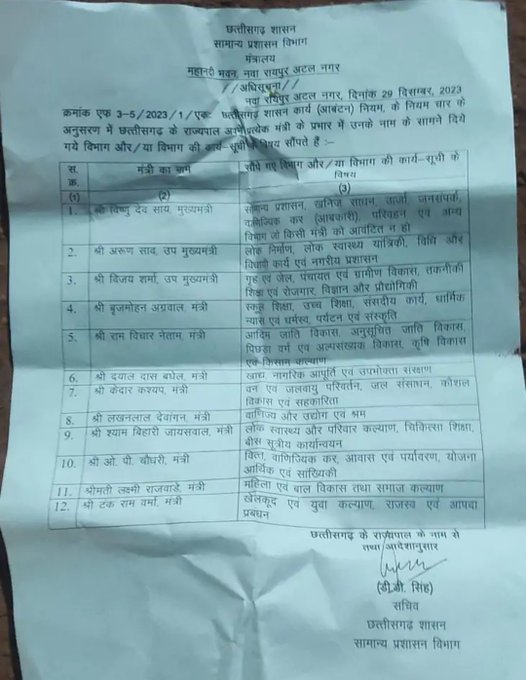 छत्तीसगढ़ शासन
सामान्य प्रशासन विभाग
मंत्रालय
महानदी भवन, नवा रायपुर अटल नगर
//अधिसूचना//
नवा रायपुर अटल नगर, दिनांक 29 दिसम्बर, 2023
क्रमांक एफ 3-5/2023/1/एक: छत्तीसगढ़ शासन कार्य (आबंटन) नियम, के नियम चार के
अनुसरण में छत्तीसगढ़ के राज्यपाल अपने प्रत्येक मंत्री के प्रभार में उनके नाम के सामने दिये
गये विभाग और/या विभाग की कार्य-सूची के विषय सौंपते हैं :-
स. क्र. मंत्री का नाम सौंपे गए विभाग और/या विभाग की कार्य-सूची के विषय
(1) (2) (3)
1. श्री विष्णु देव साय, मुख्यमंत्री सामान्य प्रशासन, खनिज साधन, ऊर्जा, जनसंपर्क,
वाणिज्यिक कर (आबकारी), परिवहन एवं अन्य
विभाग जो किसी मंत्री को आवंटित न हो
2. श्री अरूण साव, उप मुख्यमंत्री लोक निर्माण, लोक स्वास्थ्य यांत्रिकी, विधि और
विधायी कार्य एवं नगरीय प्रशासन
3. श्री विजय शर्मा, उप मुख्यमंत्री गृह एवं जेल, पंचायत एवं ग्रामीण विकास, तकनीकी
शिक्षा एवं रोजगार, विज्ञान और प्रौद्योगिकी
4. श्री बृजमोहन अग्रवाल, मंत्री स्कूल शिक्षा, उच्च शिक्षा, संसदीय कार्य, धार्मिक
न्यास एवं धर्मस्व, पर्यटन एवं संस्कृति
5. श्री राम विचार नेताम, मंत्री आदिम जाति विकास, अनुसूचित जाति विकास,
पिछड़ा वर्ग एवं अल्पसंख्यक विकास, कृषि विकास
एवं किसान कल्याण
6. श्री दयाल दास बघेल, मंत्री खाद्य, नागरिक आपूर्ति एवं उपभोक्ता संरक्षण
7. श्री केदार कश्यप, मंत्री वन एवं जलवायु परिवर्तन, जल संसाधन, कौशल
विकास एवं सहकारिता
8. श्री लखनलाल देवांगन, मंत्री वाणिज्य और उद्योग एवं श्रम
9. श्री श्याम बिहारी जायसवाल, मंत्री लोक स्वास्थ्य और परिवार कल्याण, चिकित्सा शिक्षा,
बीस सूत्रीय कार्यान्वयन
10. श्री ओ. पी. चौधरी, मंत्री वित्त, वाणिज्यिक कर, आवास एवं पर्यावरण, योजना
आर्थिक एवं सांख्यिकी
11. श्रीमती लक्ष्मी राजवाड़े, मंत्री महिला एवं बाल विकास तथा समाज कल्याण
12. श्री टंक राम वर्मा, मंत्री खेलकूद एवं युवा कल्याण, राजस्व एवं आपदा
प्रबंधन
छत्तीसगढ़ के राज्यपाल के नाम से
तथा आदेशानुसार
(डी.डी. सिंह)
सचिव
छत्तीसगढ़ शासन
सामान्य प्रशासन विभाग